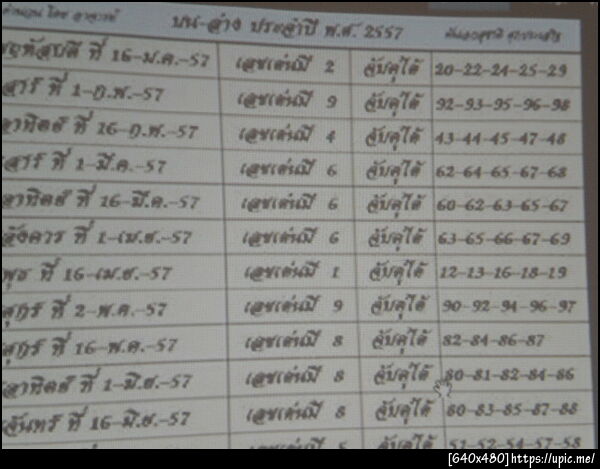 คำนวน โดย อาจารย์ บน-ล่าง ประจำปี พ.ศ. 2557
พฤหัสบดี ที่ 16-ม.ค.-57 เลขเด่นมี 2 จับคู่ได้ 20-22-24-25-29
เสาร์ ที่ 1-ก.พ.-57 เลขเด่นมี 9 จับคู่ได้ 92-93-95-96-98
อาทิตย์ ที่ 16-ก.พ.-57 เลขเด่นมี 4 จับคู่ได้ 43-44-45-47-48
เสาร์ ที่ 1-มี.ค.-57 เลขเด่นมี 6 จับคู่ได้ 62-64-65-67-68
อาทิตย์ ที่ 16-มี.ค.-57 เลขเด่นมี 6 จับคู่ได้ 60-62-63-65-67
อังคาร ที่ 1-เม.ย.-57 เลขเด่นมี 6 จับคู่ได้ 63-65-66-67-69
พุธ ที่ 16-เม.ย.-57 เลขเด่นมี 1 จับคู่ได้ 12-13-16-18-19
ศุกร์ ที่ 2-พ.ค.-57 เลขเด่นมี 9 จับคู่ได้ 90-92-94-96-97
ศุกร์ ที่ 16-พ.ค.-57 เลขเด่นมี 8 จับคู่ได้ 82-84-86-87
อาทิตย์ ที่ 1-มิ.ย.-57 เลขเด่นมี 8 จับคู่ได้ 80-81-82-84-86
จันทร์ ที่ 16-มิ.ย.-57 เลขเด่นมี 8 จับคู่ได้ 80-83-85-87-88
51-52-54-57-58
[640x480]https://upic.me/